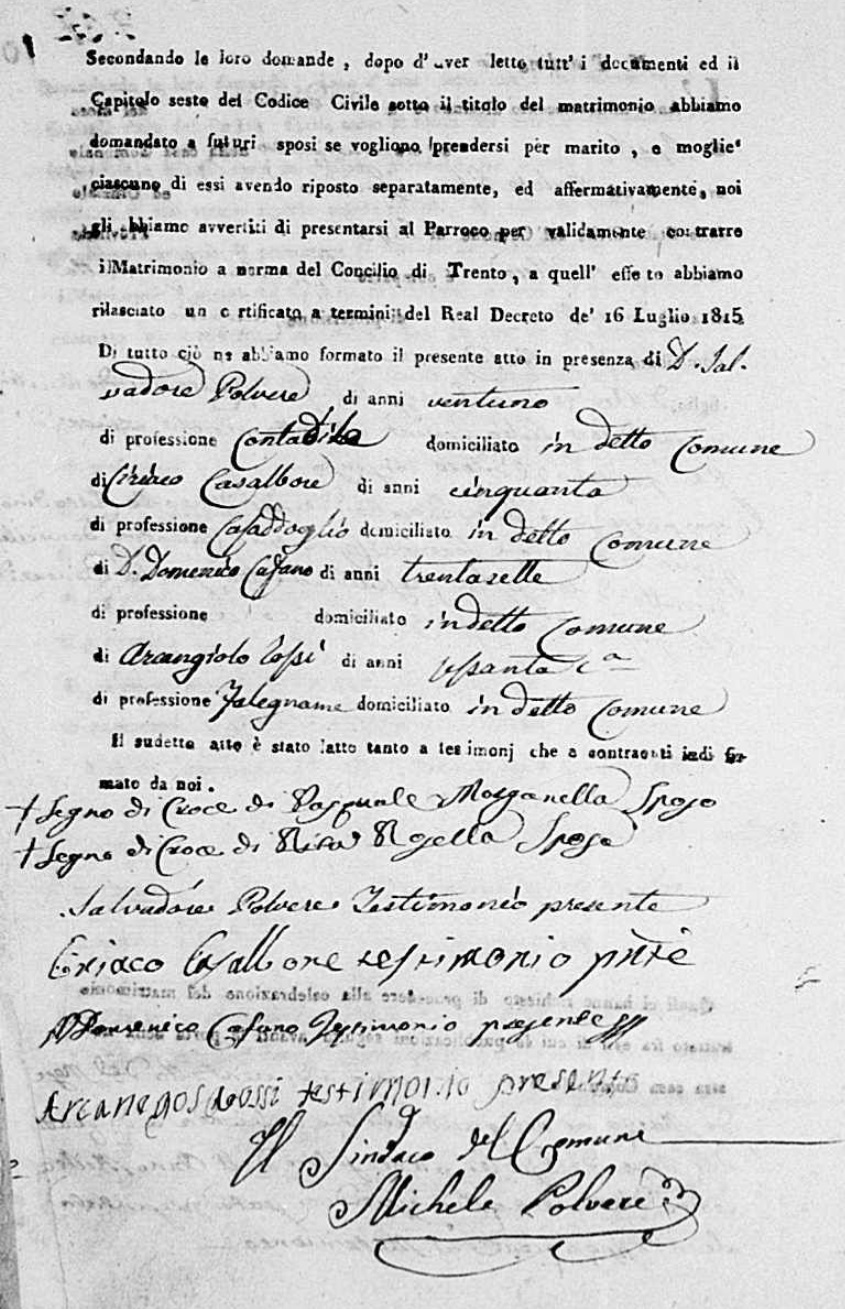 Secondando le loro domande, dopo d' aver letto tutt' i documenti ed il
Capitolo sesto del Codice Civile sotto il titolo del matrimonio abbiamo
domandato a futuri sposi se vogliono prendersi per marito, e moglie'
ciascuno di essi avendo riposto separatamente, ed affermativamente, noi
gli abbiamo avvertiti di presentarsi al Parroco per validamente contrarre
il Matrimonio a norma del Concilio di Trento, a quell' effetto abbiamo
rilasciato un certificato a termini del Real Decreto de' 16 Luglio 1815
Di tutto ciò ne abbiamo formato il presente atto in presenza di D. Sal.
vadore Polvere di anni ventuno
di professione domiciliato in detto Comune
di Ciriaco Casalbore di anni cinquanta
di professione domiciliato in detto Comune
di D. Domenico Cafano di anni trentasette
di professione domiciliato in detto Comune
di Arcangiolo di anni sessanta
di professione Falegname domiciliato in detto Comune
Il sudetto atto è stato letto tanto a testimonj che a contraenti indi fir-
mato da noi.
+ Segno di Croce di Pasquale Morganella Sposo
+ Segno di Croce di Rita Rosella Sposa
Salvadore Polvere Testimonio presente
Ciriaco Casalbore testimonio pnte
D Domenico Cafano Testimonio presente
testimonio presente
Il Sindaco del Comune
Michele Polvere